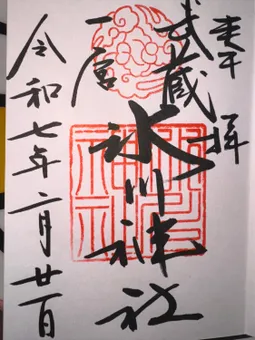 奉拝
武蔵
一宮
氷川神社
令和七年二月廿一日